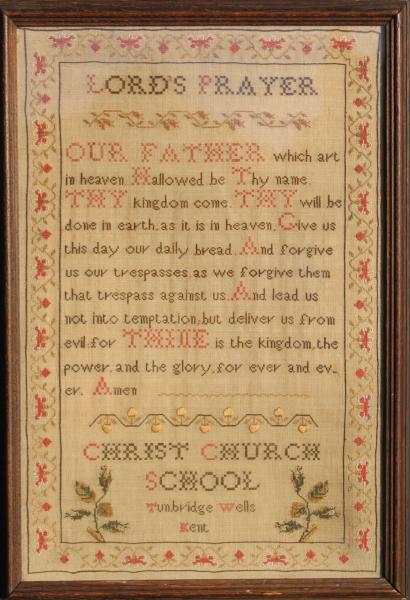 LORD'S PRAYER
OUR FATHER which art
in heaven. Hallowed be Thy name.
THY kingdom come. THY will be
done in earth, as it is in heaven. Give us
this day our daily bread. And forgive
us our trespasses, as we forgive them
that trespass against us. And lead us
not into temptation; but deliver us from
evil: for THINE is the kingdom, the
power, and the glory, for ever and ev-
er. Amen
CHRIST CHURCH
SCHOOL
Tunbridge Wells
Kent